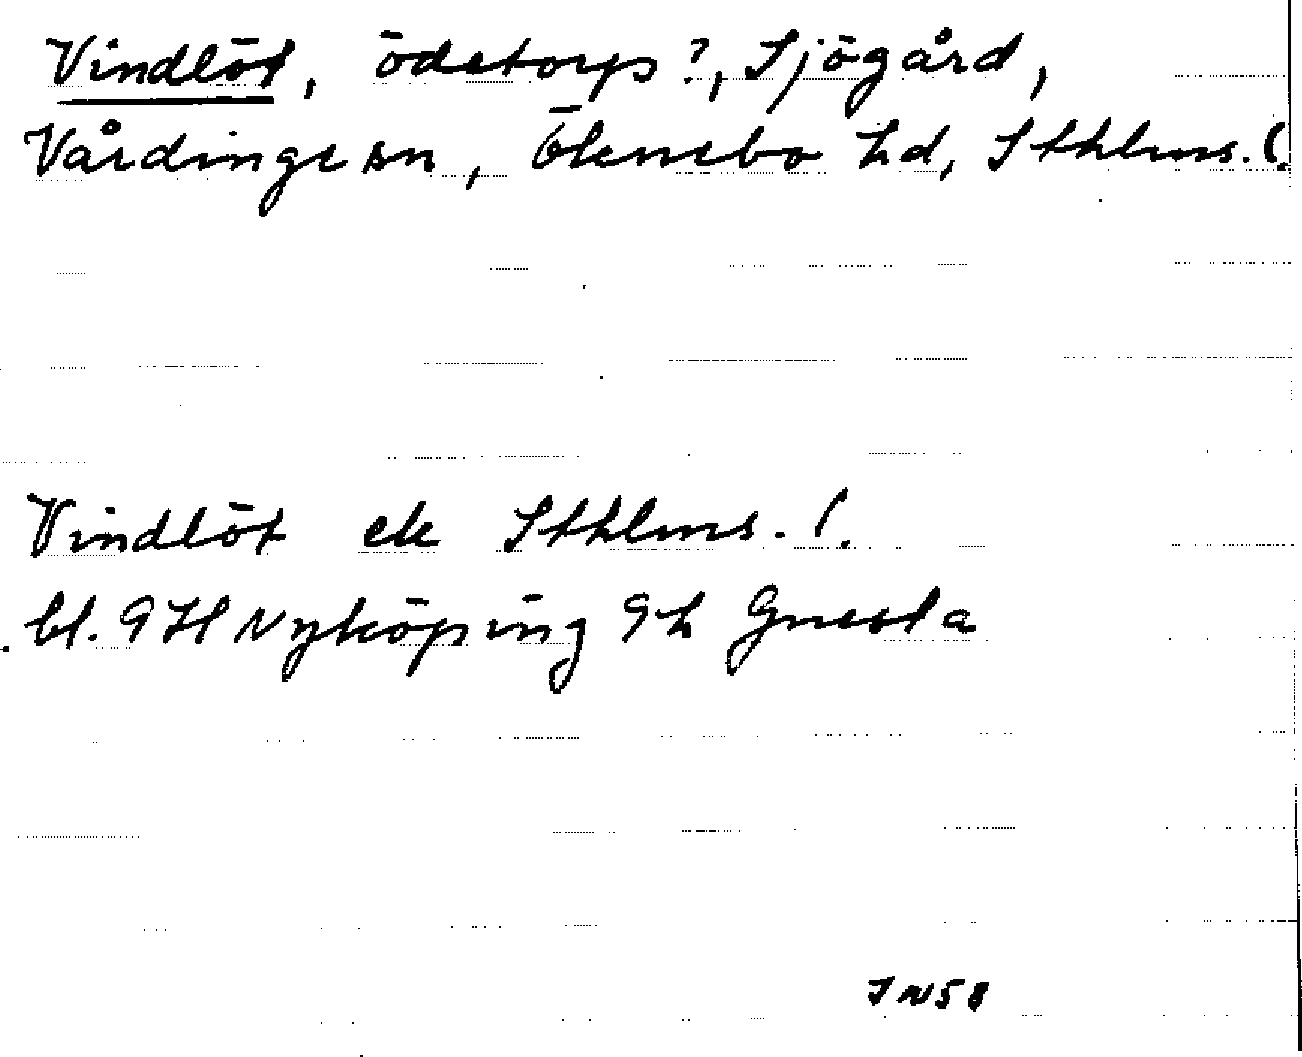 Vindlöt, ödetorps?, Sjögård,
Vårdinge sn, Öknebo hd, Sthlms. l.
Vindlöt ek Sthlms. l.
bl. 9H Nyköping 9h Gnesta